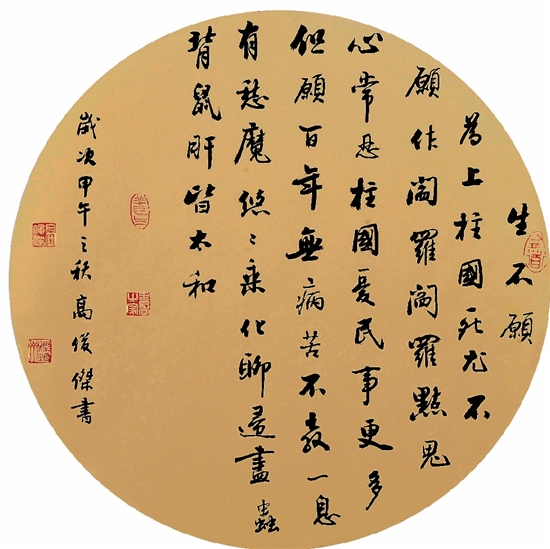 生不願
為上柱國死尤不
願作閻羅閻羅點鬼
心常忍柱國憂民事更多
但願百年無病苦不教一息
有愁魔悠〻乘化聊歸盡蟲
臂鼠肝皆太和
歲次甲午之秋高俊傑書